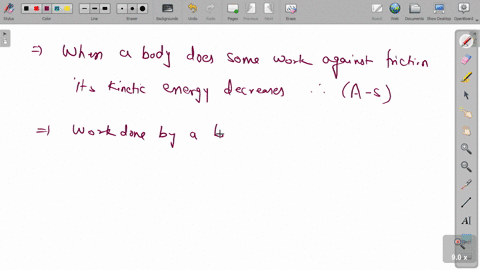 Board
Tools
Background
Undo
Redo
Pages
Previous
Next
Erase
Board
Web
Documents
Show Desktop
OpenBoard
⇒ When a body does some work against friction
its kinetic energy decreases ∴ (A-s)
⇒ Work done by a
9.0 x